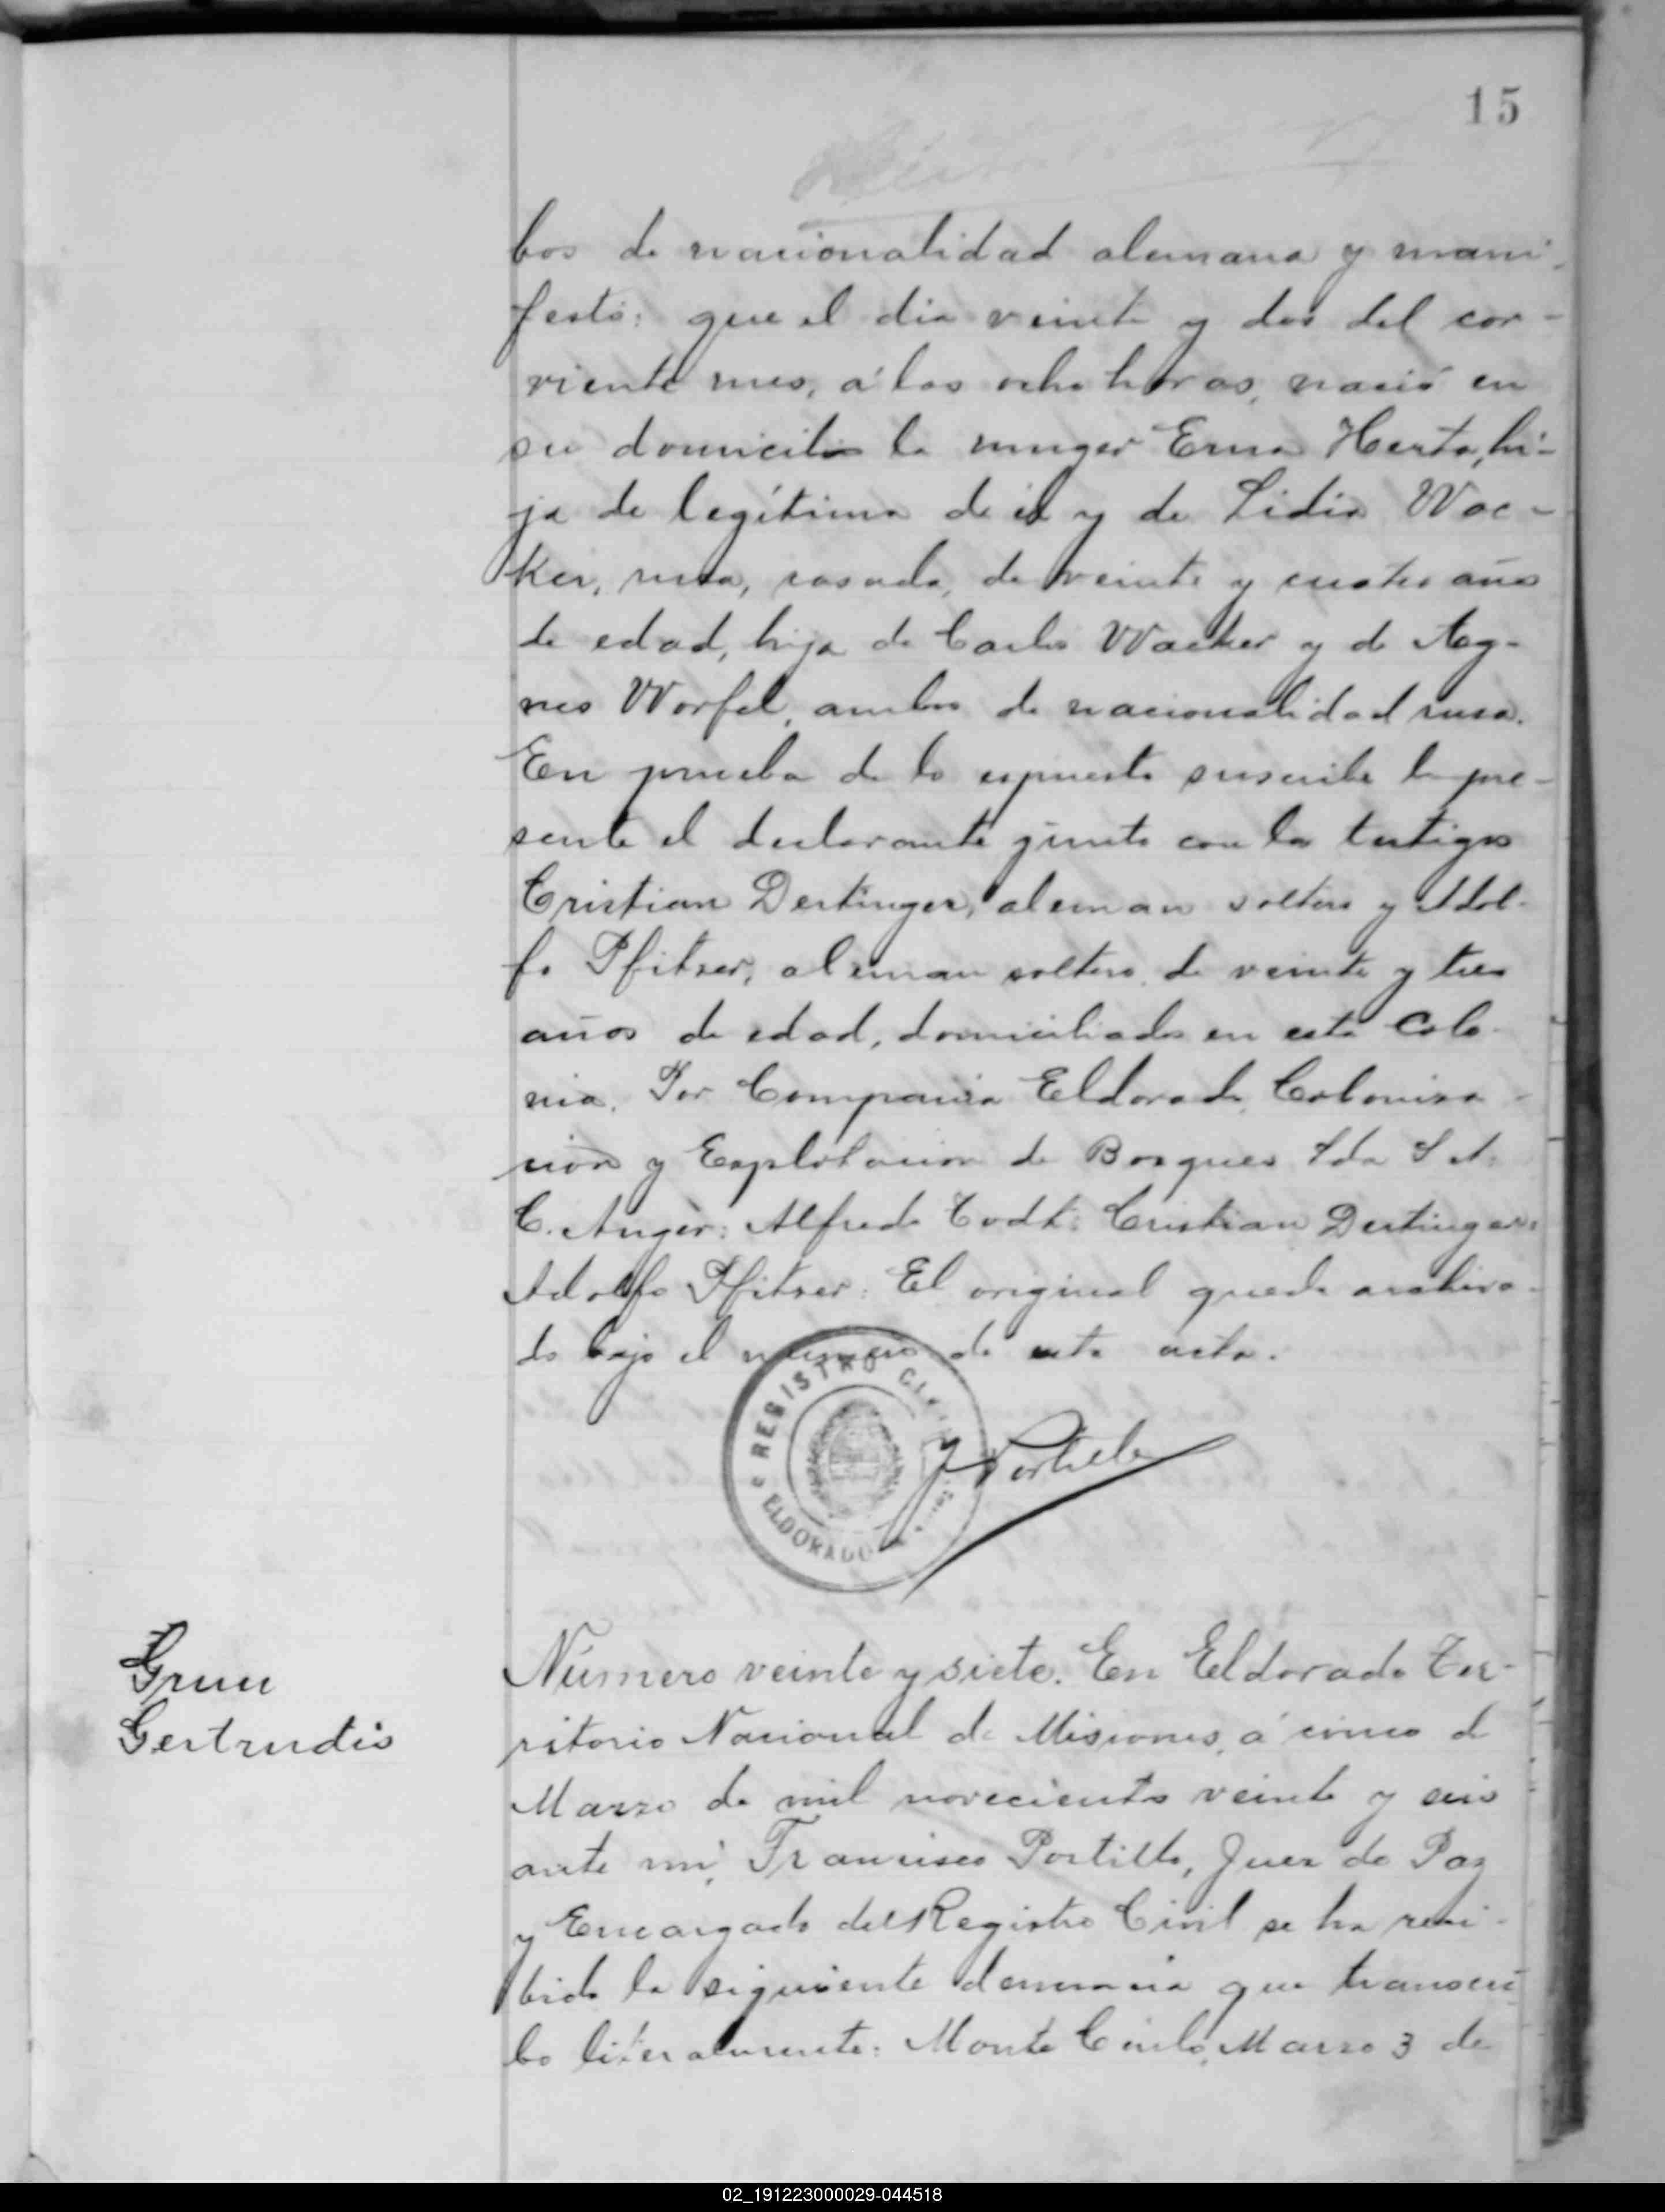 15
bos de nacionalidad alemana y mani-
festó: que el dia veinte y dos del cor-
riente mes, á las ocho horas, nació en
su domicilio la muger Erna Herta, hi-
ja de legítima de él y de Lidia Wac-
ker, rusa, casada, de veinte y cuatro años
de edad, hija de Carlos Wacker y de Ag-
nes Worfel, ambos de nacionalidad rusa.
En prueba de lo espuesto suscribe la pre-
sente el declarante junto con los testigos
Cristian Dertinger, aleman soltero y Adol-
fo Pfitzer, aleman soltero, de veinte y tres
años de edad, domiciliados en esta Colo-
nia. Por Compania Eldorado, Coloniza-
cion y Esplotacion de Bosques Lda S. A.
C. Anger: Alfredo Todt: Cristian Dertinger:
Adolfo Pfitzer: El original queda archiva-
do bajo el número de esta acta.
REGISTRO CIVIL
ELDORADO
Portillo
Grun
Gertrudis
Número veinte y siete. En Eldorado Ter-
ritorio Nacional de Misiones, á cinco de
Marzo de mil novecientos veinte y seis
ante mí, Francisco Portillo, Juez de Paz
y Encargado del Registro Civil se ha reci-
bido la siguiente denuncia que transcri-
bo literalmente: Monte Carlo, Marzo 3 de
02_191223000029-044518